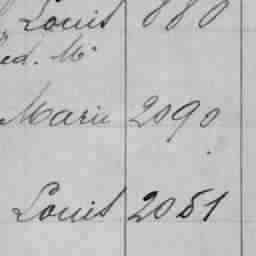 Louis 880
ed. Mc
Marie 2090
Louis 2051